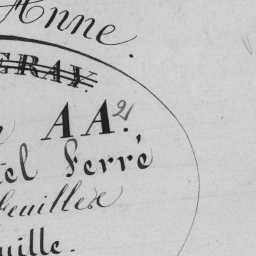 Anne.
ERAY.
AA. 2
tel Ferré
Feuilles
uille.